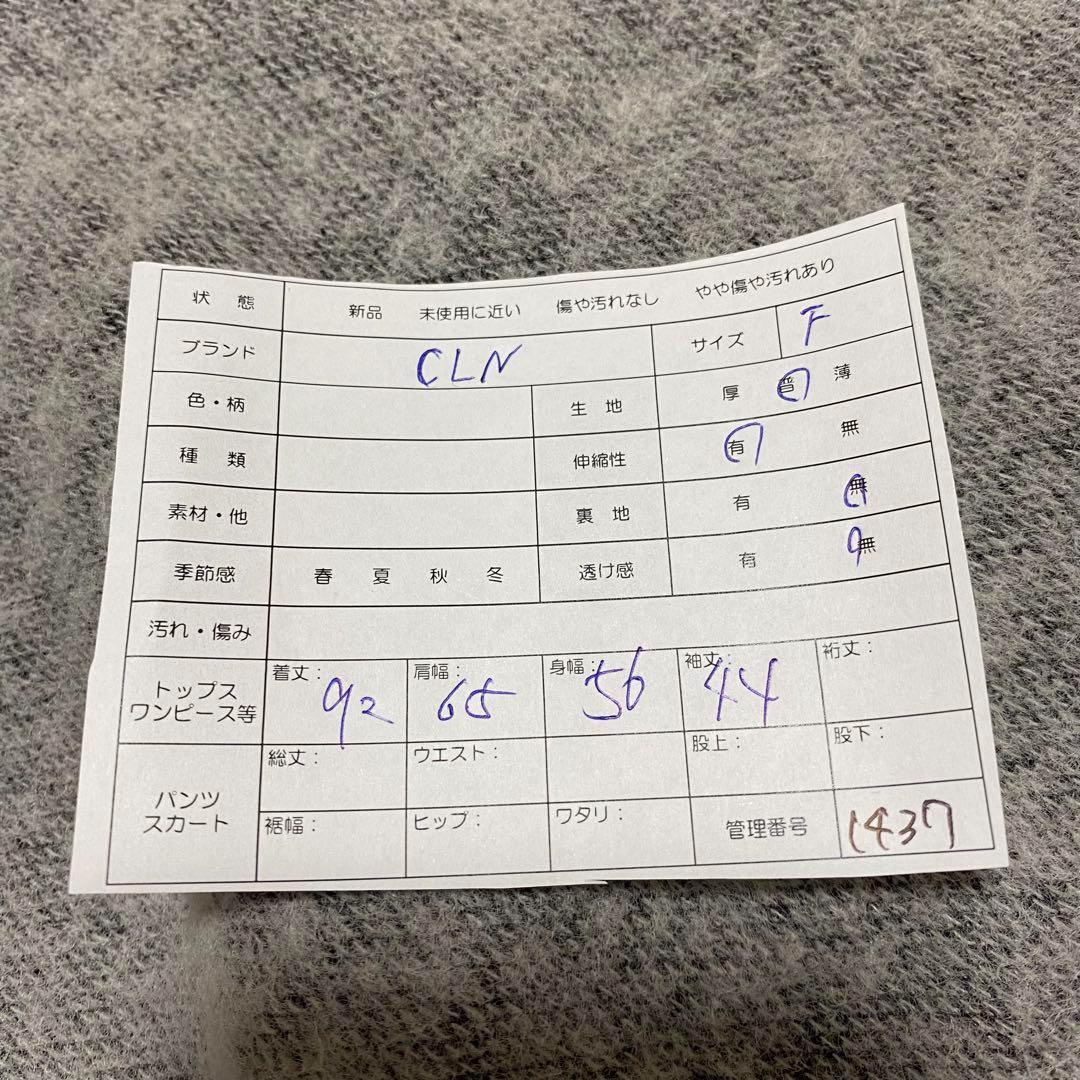 状態 新品 未使用に近い 傷や汚れなし やや傷や汚れあり
ブランド CLN サイズ F
色・柄 生地 厚 普 薄
種類 伸縮性 有 無
素材・他 裏地 有 無
季節感 春 夏 秋 冬 透け感 有 無
汚れ・傷み
トップス
ワンピース等
着丈: 92 肩幅: 65 身幅: 56 袖丈: 44 裄丈:
パンツ
スカート
総丈: ウエスト: 股上: 股下:
裾幅: ヒップ: ワタリ: 管理番号 1437